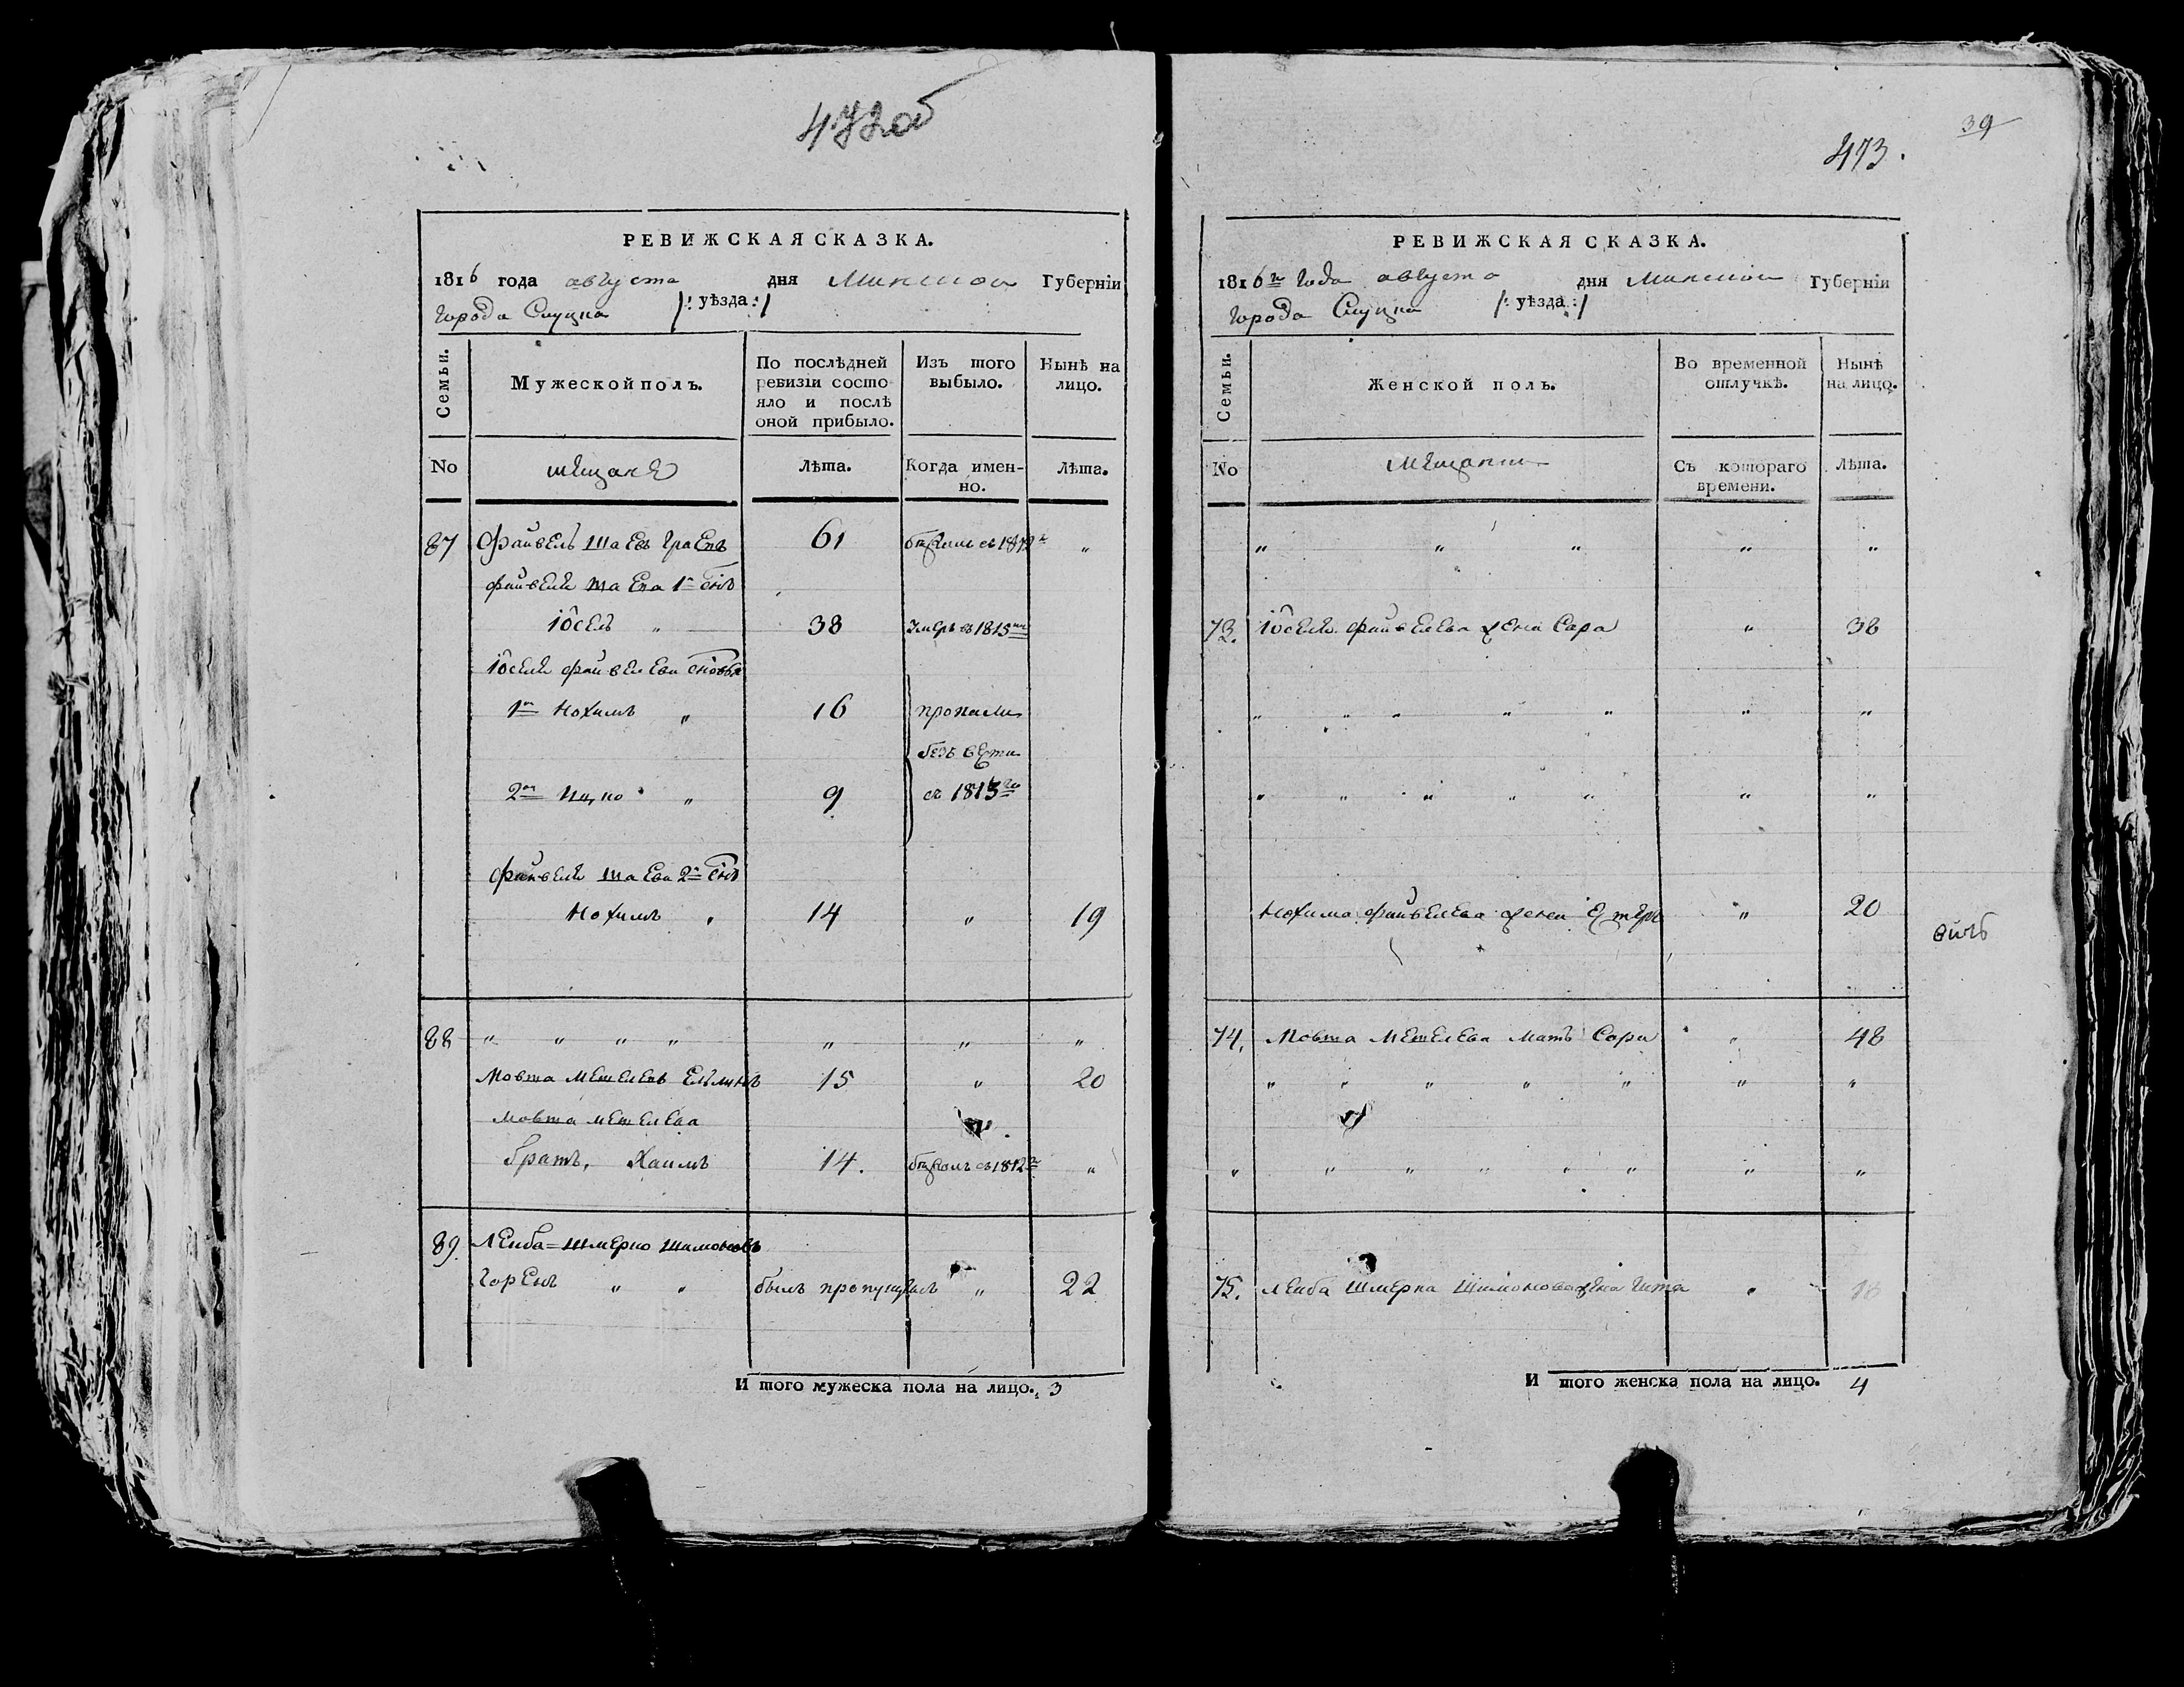 472 об
РЕВИЖСКАЯ СКАЗКА.
1816 года августа дня Минской Губерніи
города Слуцка /: уѣзда :/
Семьи.
Мужеской полъ.
По послѣдней ревизіи состояло и послѣ оной прибыло.
Изъ того выбыло.
Нынѣ на лицо.
No
мещане
Лѣта.
Когда именно.
Лѣта.
87 Файвель Шаевъ 61 бежалъ съ 1812 г „
Файвеля Шаева 1й снъ
Іосель „ 38 умеръ въ 1815 м
Іоселя Файвелева сновья
1й Нохимъ „ 16 пропали
безъ вести
2й Ицко „ 9 съ 1813 го
Файвеля Шаева 2й снъ
Нохимъ „ 14 „ 19
88 „ „ „ „ „ „ „
Мовша Мешелевъ 15 „ 20
Мовша Мешелева
братъ, Хаимъ 14. бежалъ съ 1812 г „
89. Леиба=Шмерко Шимоновъ
„ „ былъ пропущенъ „ 22
И того мужеска пола на лицо. 3
39
473.
РЕВИЖСКАЯ СКАЗКА.
1816 го года августа дня Минской Губерніи
города Слуцка /: уѣзда :/
Семьи.
Женской полъ.
Во временной отлучкѣ.
Нынѣ на лицо.
No
Мещанки
Съ котораго времени.
Лѣта.
„ „ „ „ „
73. Іоселя Файвелева жена Сара „ 38
„ „ „ „ „ „ „
„ „ „ „ „ „ „
Нохима Файвелева жена Естеръ „ 20
74. Мовша Мешелева мать Сора „ 48
„ „ „ „ „ „ „
„ „ „ „ „ „ „ „
75. Леиба Шмерка Шимонова жена Гита „ 18
И того женска пола на лицо. 4